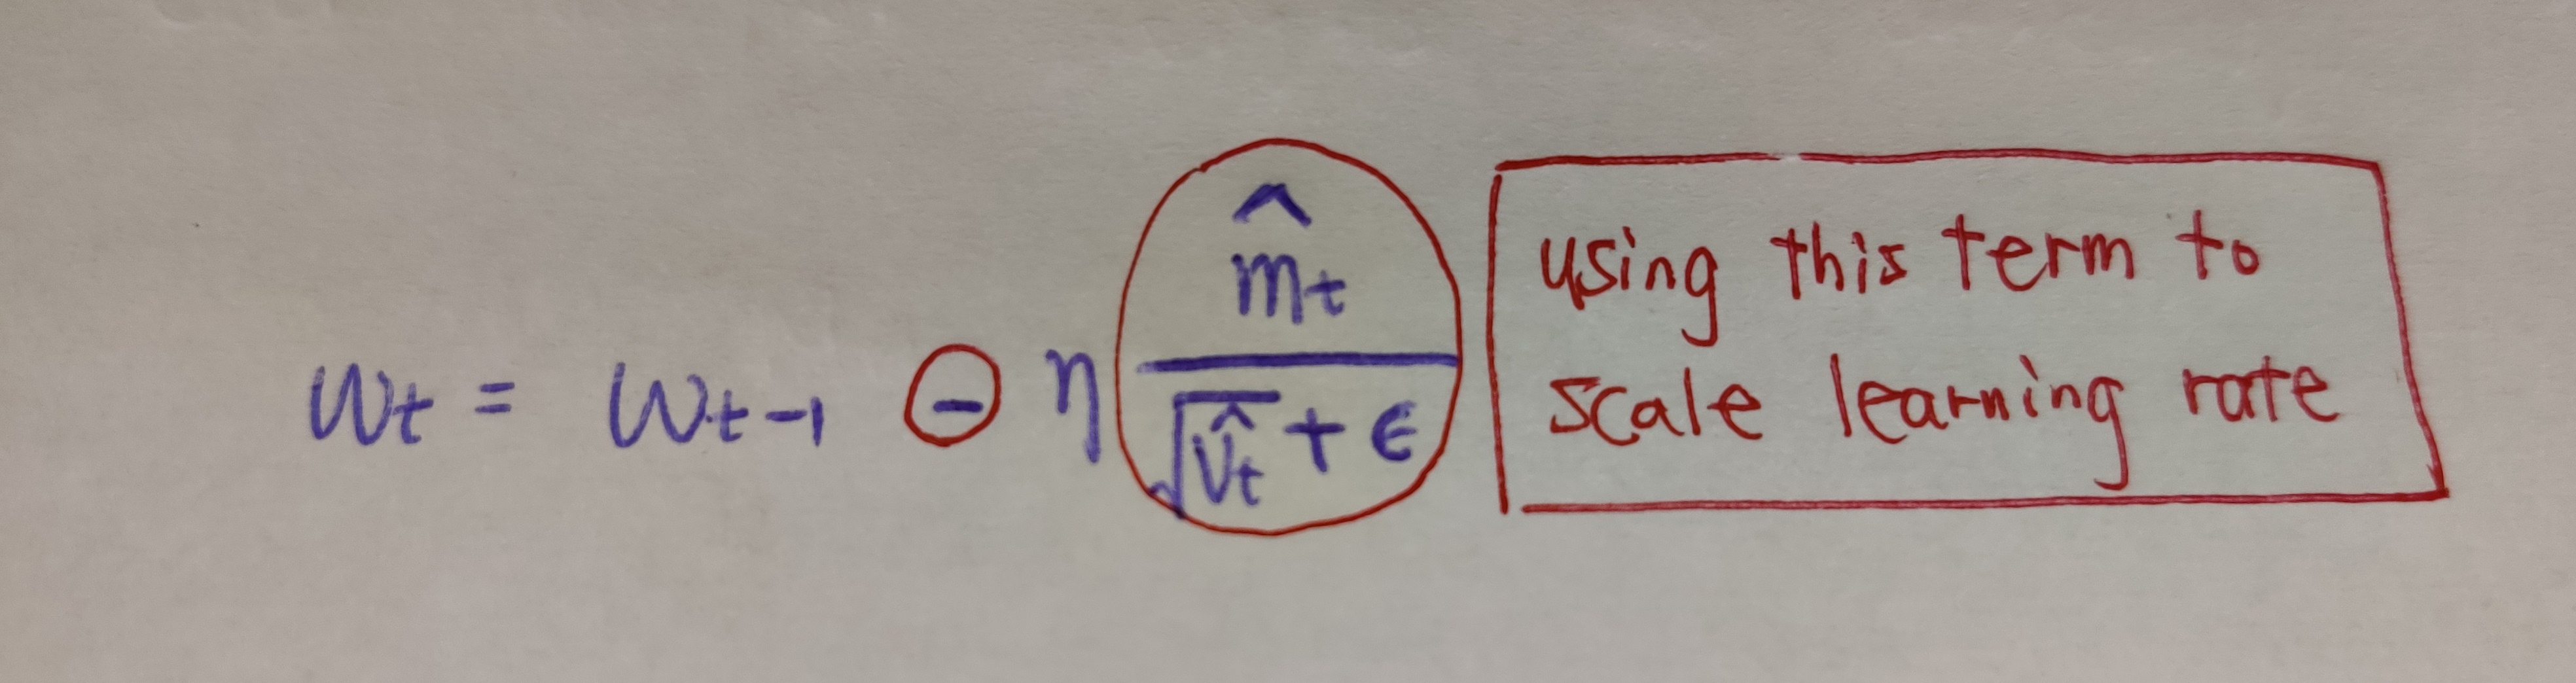 Wt = Wt-1 - η m̂t / (√v̂t + ϵ)
using this term to
scale learning rate